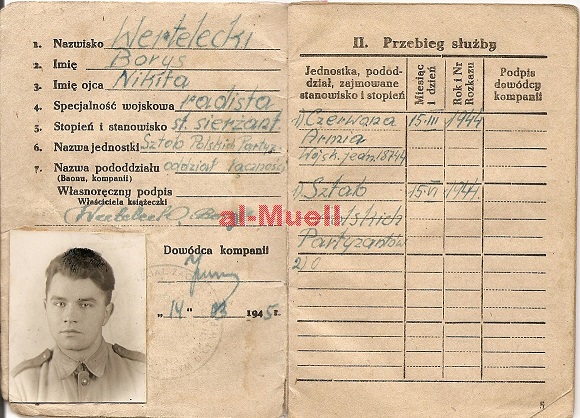 1. Nazwisko Wertelecki
2. Imię Borys
3. Imię ojca Nikita
4. Specjalność wojskowa radista
5. Stopień i stanowisko st. sierżant
6. Nazwa jednostki Sztab Polskich Partyz.
7. Nazwa pododdziału oddział łączności
(Baonu, kompanii)
Własnoręczny podpis
Właściciela książeczki
al-Muell
Dowódca kompanii
„14" 03 1945 r.
II. Przebieg służby
Jednostka, pododdział, zajmowane stanowisko i stopień
Miesiąc i dzień
Rok i Nr Rozkazu
Podpis dowódcy kompanii
1) Czerwana 15-III 1944
Armia
Wojsk. jedn. 18744
1) Sztab 15-VI 1944.
Polskich
Partyzantów
2)
5